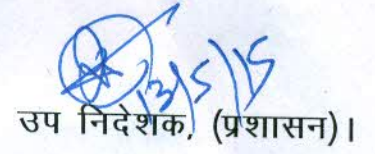 13/5/15
उप निदेशक, (प्रशासन)।